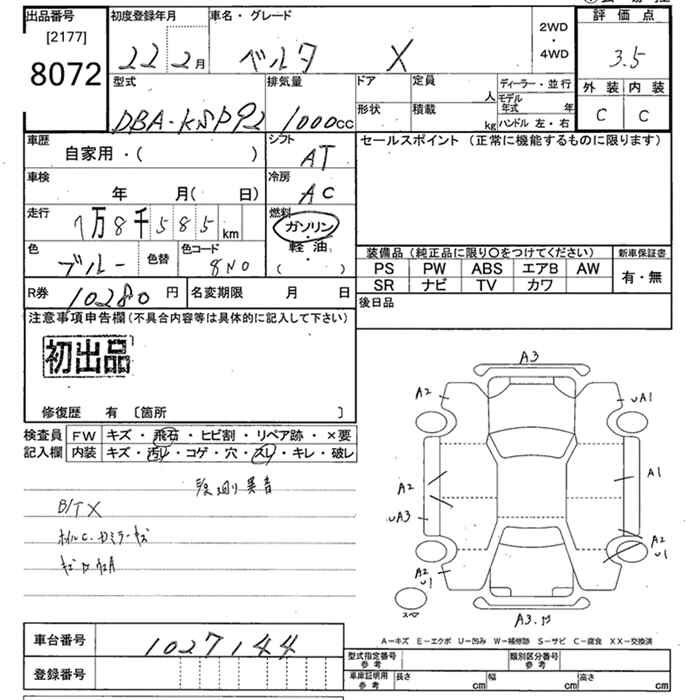 出品番号
[2177]
8072
初度登録年月
22 2月
車名・グレード
ベルタ X
2WD
・
4WD
評価点
3.5
外装 内装
C C
型式
DBA-KSP92
排気量
1000cc
ドア
形状
定員
人
積載
kg
ディーラー・並行
モデル年式 年
ハンドル 左・右
車歴
自家用・( )
シフト
AT
車検
年 月( 日)
冷房
AC
走行
7万8千585km
燃料
ガソリン
・
軽油
( )
色
ブルー
色替
色コード
8N0
R券
10280円
名変期限 月 日
セールスポイント(正常に機能するものに限ります)
装備品(純正品に限り〇をつけてください)
PS PW ABS エアB AW
SR ナビ TV カワ
新車保証書
有・無
後日品
注意事項申告欄(不具合内容等は具体的に記入して下さい)
初出品
修復歴 有 〔箇所 〕
検査員
記入欄
FW キズ・飛石・ヒビ割・リペア跡・×要
内装 キズ・汚レ・コゲ・穴・スレ・キレ・破レ
異音
B/TX
A3
A2
uA1
A2
A1
uA3
A2
u1
A2
u1
スペ
A3.
A-キズ E-エクボ U-凹み W-補修跡 S-サビ C-腐食 XX-交換済
車台番号
1027144
登録番号
型式指定番号
参考
類別区分番号
参考
車庫証明用
参考
長さ cm
幅 cm
高さ cm